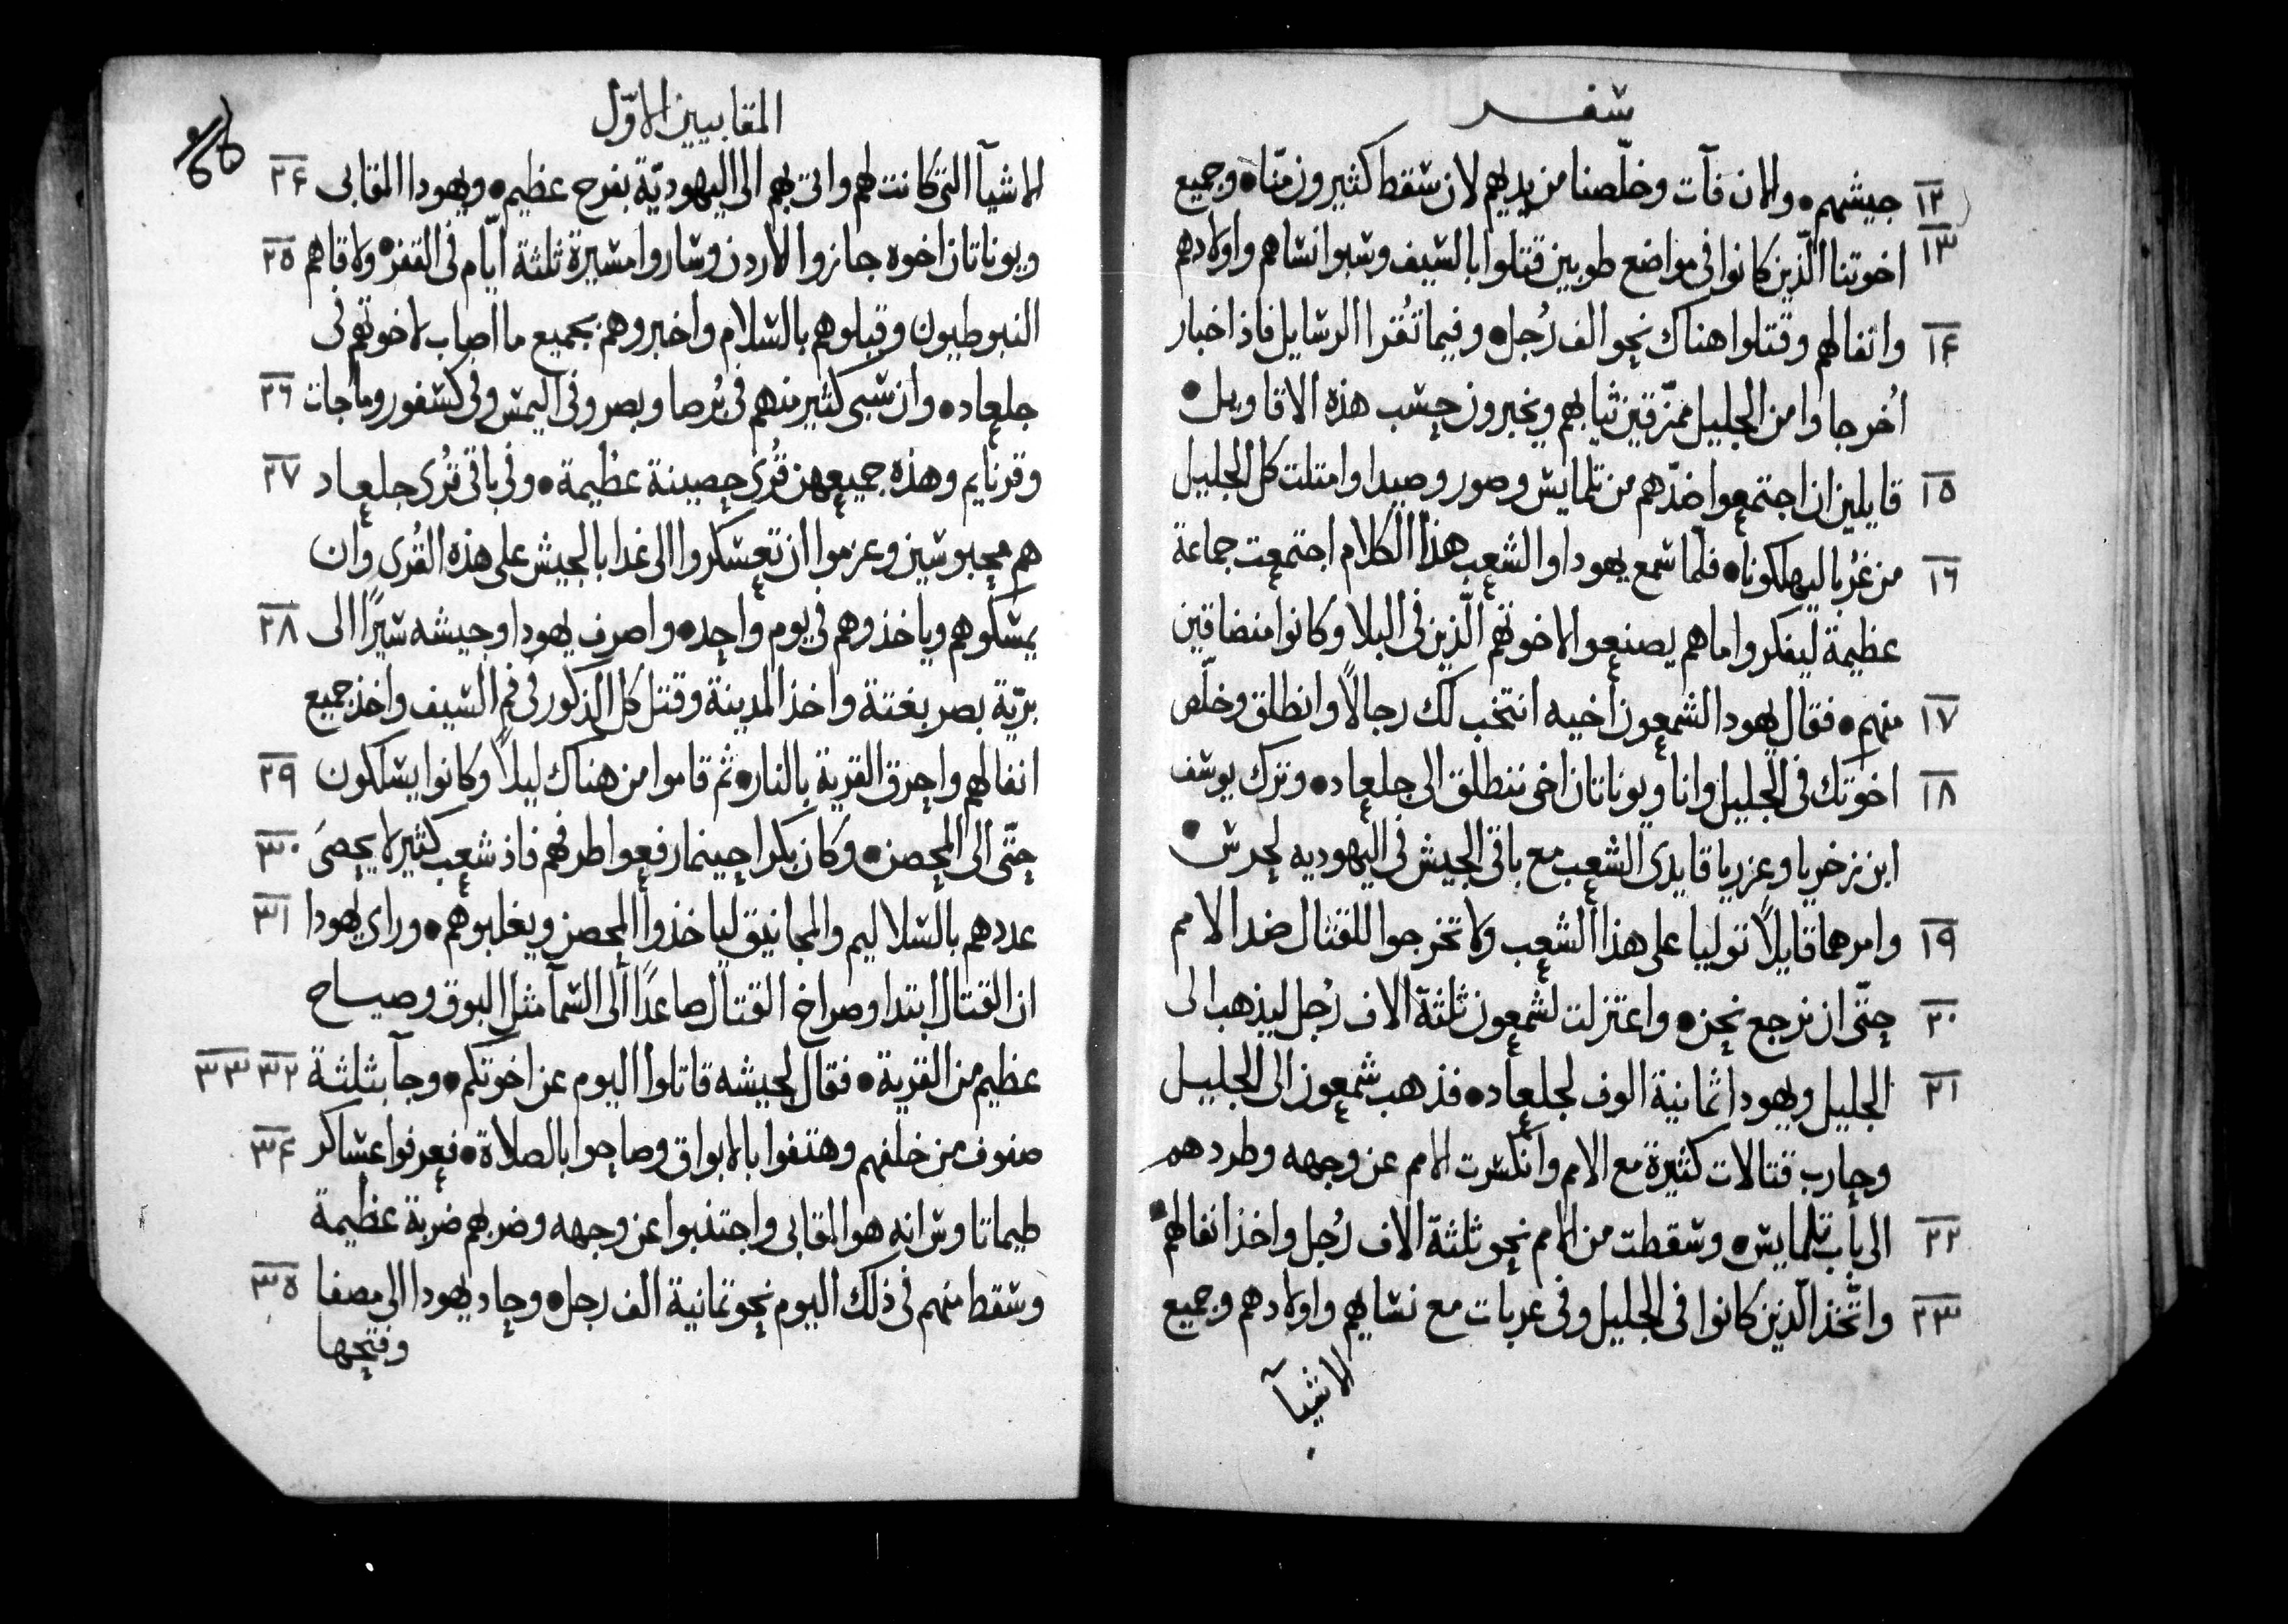 سفر
١٢ جيشهم • والان فآت وخلّصنا من يديهم لان سقط كثيرون منّا • وجميع
١٣ اخوتنا الّذين كانوا في مواضع طوبين قتلوا بالسيف وسبوا نساهم واولادهم
١٤ واتفالهم وقتلوا هناك نحو الف رُجل • وفيما تُقرا الرسايل فاذ اخبار
اُخر جاوا من الجليل ممزّقين ثيابهم ويخبرون حسب هذه الاقاويل •
١٥ قايلين ان اجتمعوا ضدّهم من تلمايس وصور وصيدا وامتلت كل الجليل
١٦ من غُربا ليهلكونا • فلمّا سمع يهودا والشعب هذا الكلام اجتمعت جماعة
عظيمة ليفكروا ماهم يصنعوا لاخوتهم الّذين في البلا وكانوا منضاقين
١٧ منهم • فقال يهودا لشمعون اخيه انتخب لك رجالاً وانطلق وخلّص
١٨ اخوتك في الجليل وانا ويوناتان اخي ننطلق الى جلعاد • وترك يوسف
ابن زخريا وعزريا قايدي الشعب مع باقي الجيش في اليهوديه لحرس •
١٩ وامرهما قايلاً توليا على هذا الشعب ولا تخرجوا للقتال ضد الامم
٢٠ حتّى ان نرجع نحن • واعتزلت لشمعون ثلثة الاف رُجل ليذهب الى
٢١ الجليل ويهودا ثمانية الوف لجلعاد • فذهب شمعون الى الجليل
وحارب قتالات كثيرة مع الامم وانكسرت الامم عن وجهه وطردهم
٢٢ الى باب تلمايس • وسقطت من الامم نحو ثلثة الاف رُجل واخذ انفالهم •
٢٣ واتّخذ الّذين كانوا في الجليل وفي عربات مع نسايهم واولادهم وجميع
الاشيآ
المقابيين الاوّل
الاشيآ التي كانت لهم واتى بهم الى اليهوديّة بفرح عظيم • ويهودا المقابى ٢٤
ويوناتان اخوه جازوا الاردن وساروا مسيرة ثلثة ايّام في القفر • ولاقاهم ٢٥
النبوطيون وقبلوهم بالسلام واخبروهم بجميع ما اصاب لاخوتهم في
جلعاد • وان سبى كثير منهم في بُرصا وبصر وفي اليمس وفي كسفور وماجات ٢٦
وقرنايم وهذه جميعهن قُرى حصينة عظيمة • وفي باقي قُرى جلعاد ٢٧
هم محبوسين وعزموا ان تعسكروا الى غدا بالجيش على هذه القُرى وان
يمسكوهم وياخذوهم في يوم واحد • واصرف يهودا وجيشه سيرًا الى ٢٨
برّية بصر بغتة واخذ المدينة وقتل كل الذكور في فم السيف واخذ جميع
انفالهم واحرق القرية بالنار • ثم قاموا من هناك ليلاً وكانوا يسلكون ٢٩
حتّى الى المحصن • وكان بكرا حينما رفعوا طرفهم فاذ شعب كثير لا يحصَى ٣٠
عددهم بالسلاليم والمجانيق لياخذوا المحصن ويغلبوهم • وراى يهودا ٣١
ان القتال ابتدا وصراخ القتال صاعدًا الى السمآ مثل البوق وصياح
عظيم من القرية • فقال لجيشه قاتلوا اليوم عن اخوتكم • وجآ بثلثة ٣٢ ٣٣
صفوف من خلفهم وهتفوا بالابواق وصاحوا بالصلاة • فعرفوا عساكر ٣٤
طيماتاوس انه هو المقابى واجتذبوا عن وجهه وضربهم ضربة عظيمة
وسقط منهم في ذلك اليوم نحو ثمانية الف رجل • وحاد يهودا الى مصفا ٣٥
وفتحها